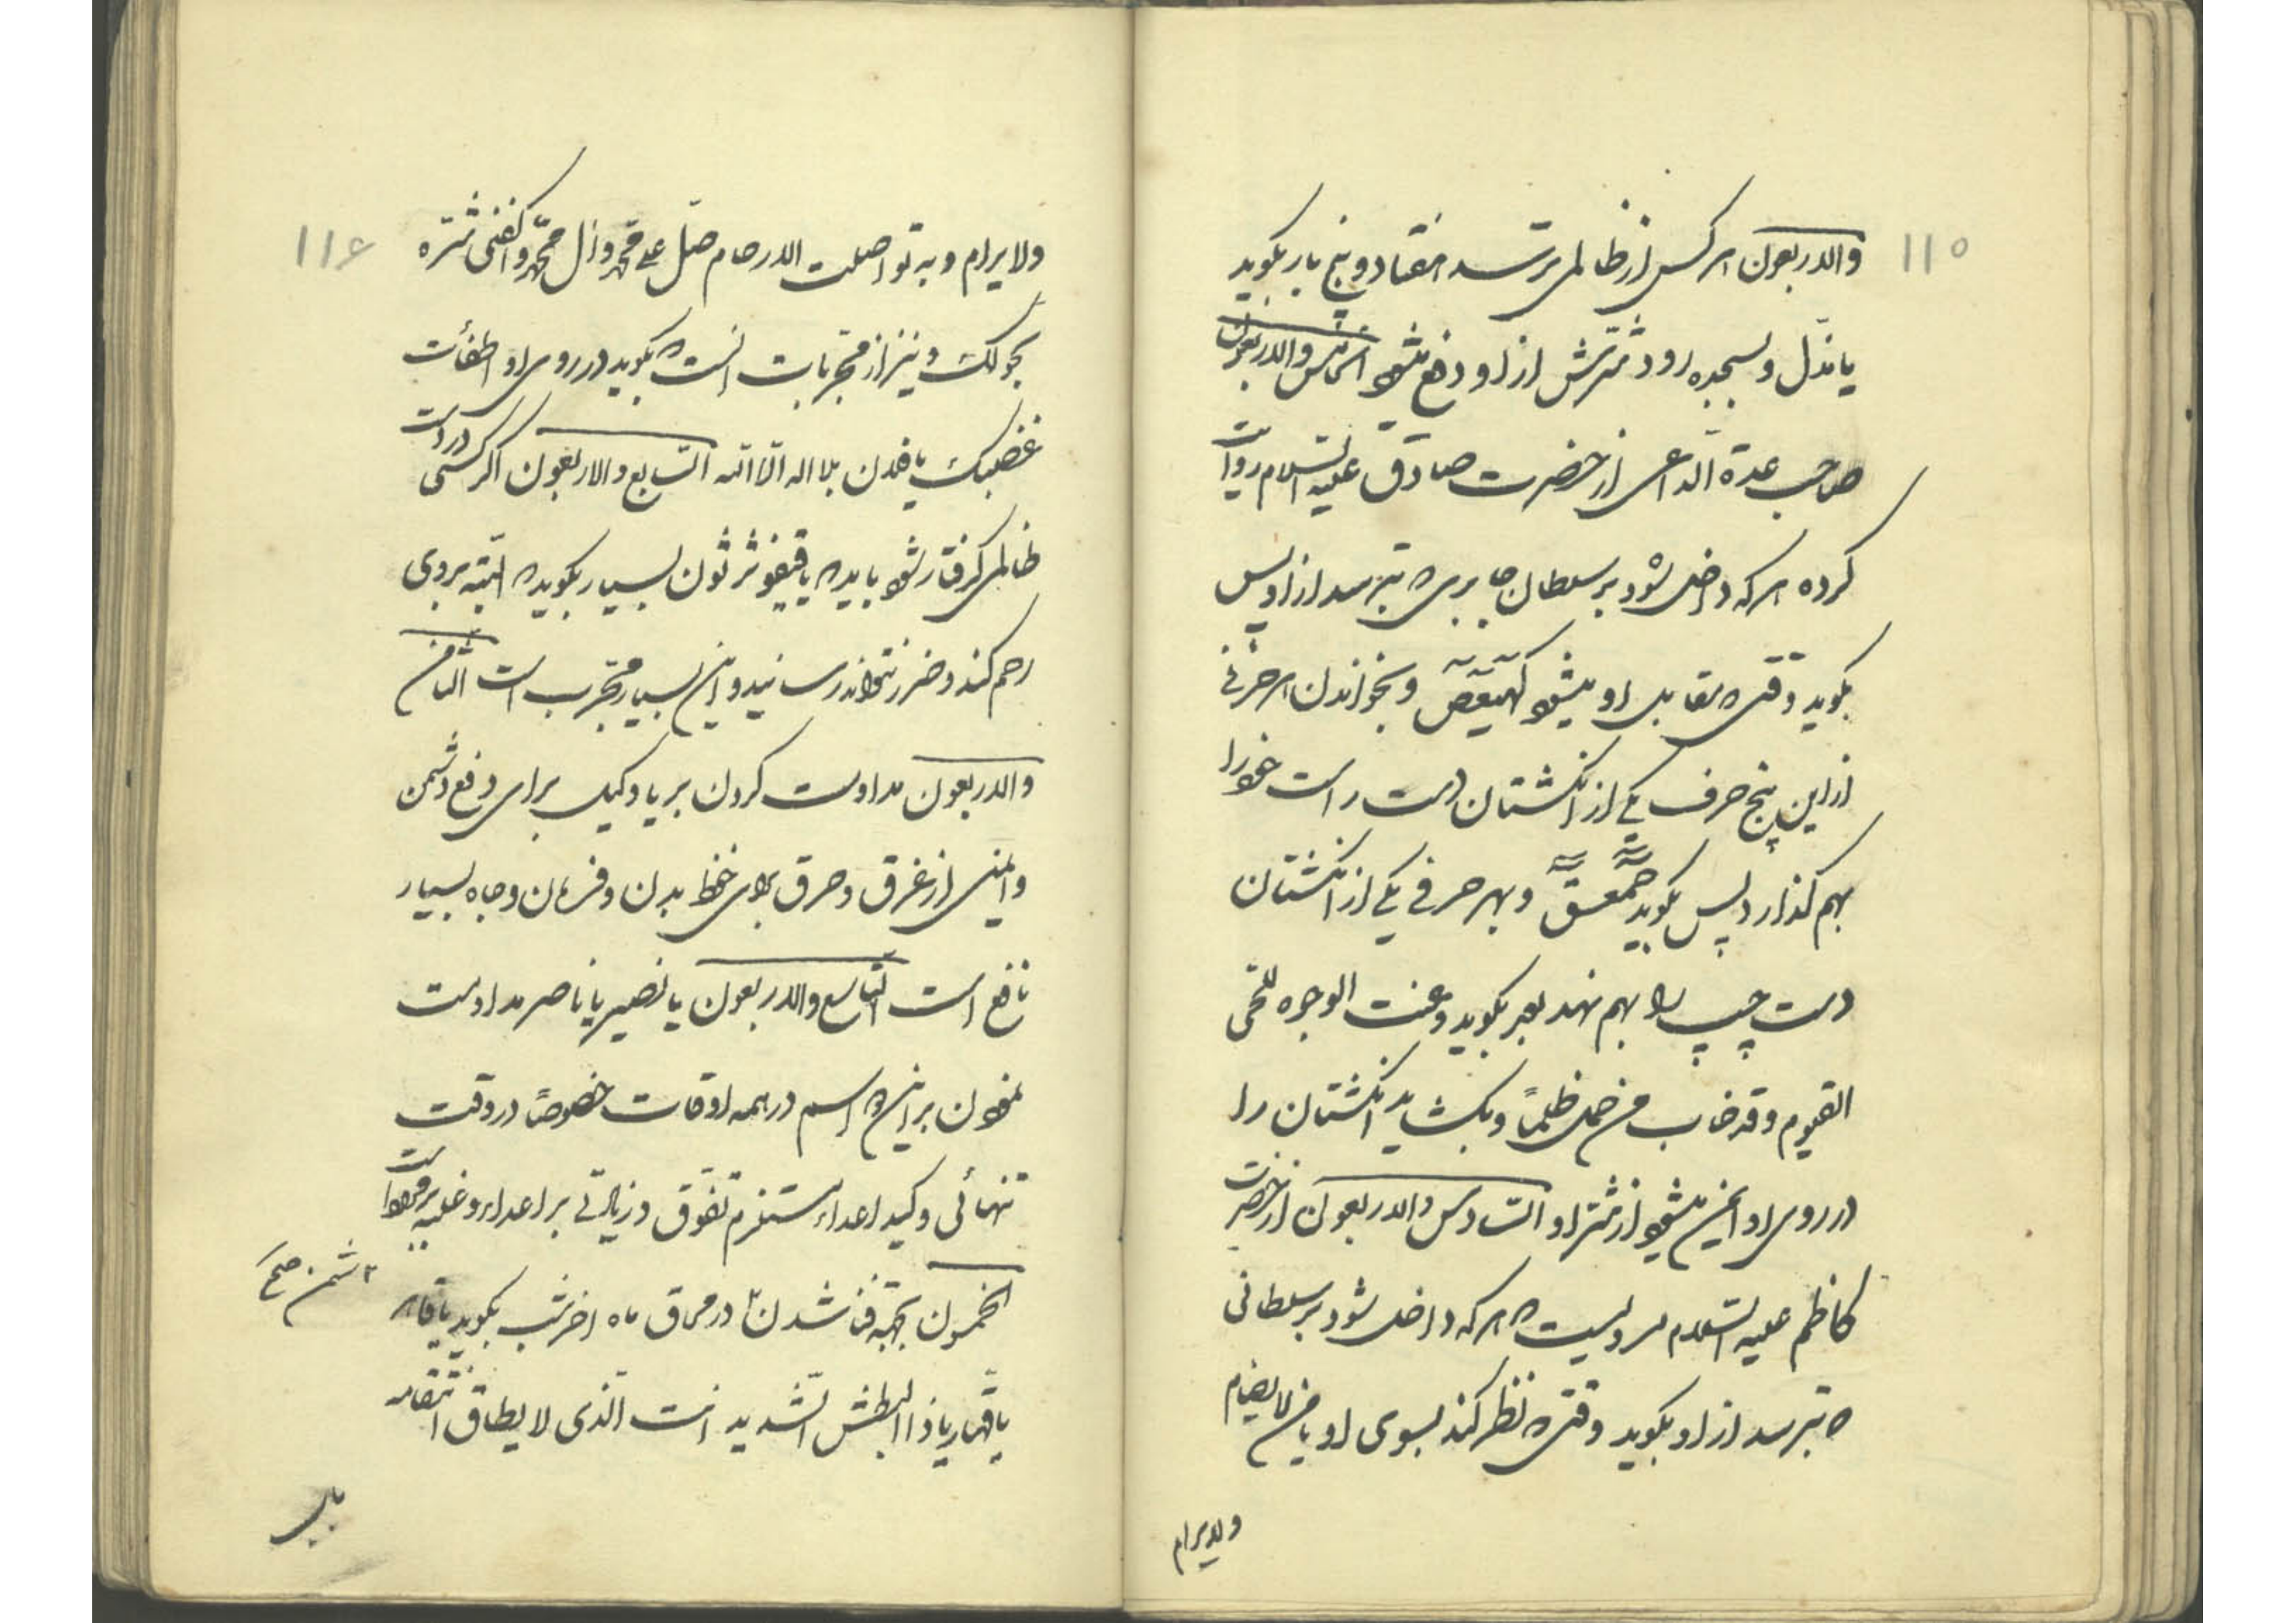 ۱۱۵
والاربعون هر کس از ظالمی ترسد هفتاد و پنج بار بگوید
یا مذل و بسجده رود شرش از او دفع میشود الخامس والاربعون
صاحب عدة الداعی از حضرت صادق علیه السلام روایت
کرده هر که داخل شود بر سلطان جابری که بترسد از او پس
بگوید وقتی که مقابل او میشود کهیعص و بخواندن هر حرفی
از این پنج حرف یکی از انگشتان دست راست خود را
بهم گذارد پس بگوید حمعسق و بهر حرفی یکی از انگشتان
دست چپ را بهم نهد بعد بگوید و عنت الوجوه للحی
القیوم و قد خاب من حمل ظلماً و بگشاید انگشتان را
در روی او ایمن میشود از شر او السادس والاربعون از حضرت
کاظم علیه السلام مرویست که هر که داخل شود بر سلطانی
که بترسد از او بگوید وقتی که نظر کند بسوی او یا من لا یضام
ولایرام
۱۱۶
ولا یرام و به تواصلت الارحام صل علی محمد وآل محمد واکفنی شره
بحولک و نیز از مجربات است که بگوید در روی او اطفأت
غضبک یا فلان بلا اله الا الله السابع والاربعون اگر کسی در دست
ظالمی گرفتار شود باید که یا بسیار بگوید که البته بر وی
رحم کند و ضرر نتواند رسانید و این بسیار مجرب است الثامن
والاربعون مداومت کردن بر یا وکیل برای دفع دشمن
و ایمنی از غرق و حرق برای حفظ بدن و فرمان و جاه بسیار
نافع است التاسع والاربعون یا نصیر یا ناصر مداومت
نمودن بر این دو اسم در همه اوقات خصوصاً در وقت
تنهائی و کید اعداء مستلزم تفوق و زیادتی بر اعداء و غلبه بر
الخمسون بجهة فنا شدن در محاق ماه اخر شب بگوید یا قاهر
دشمن صح
یا قهار یا ذا البطش الشدید انت الذی لا یطاق انتقامه